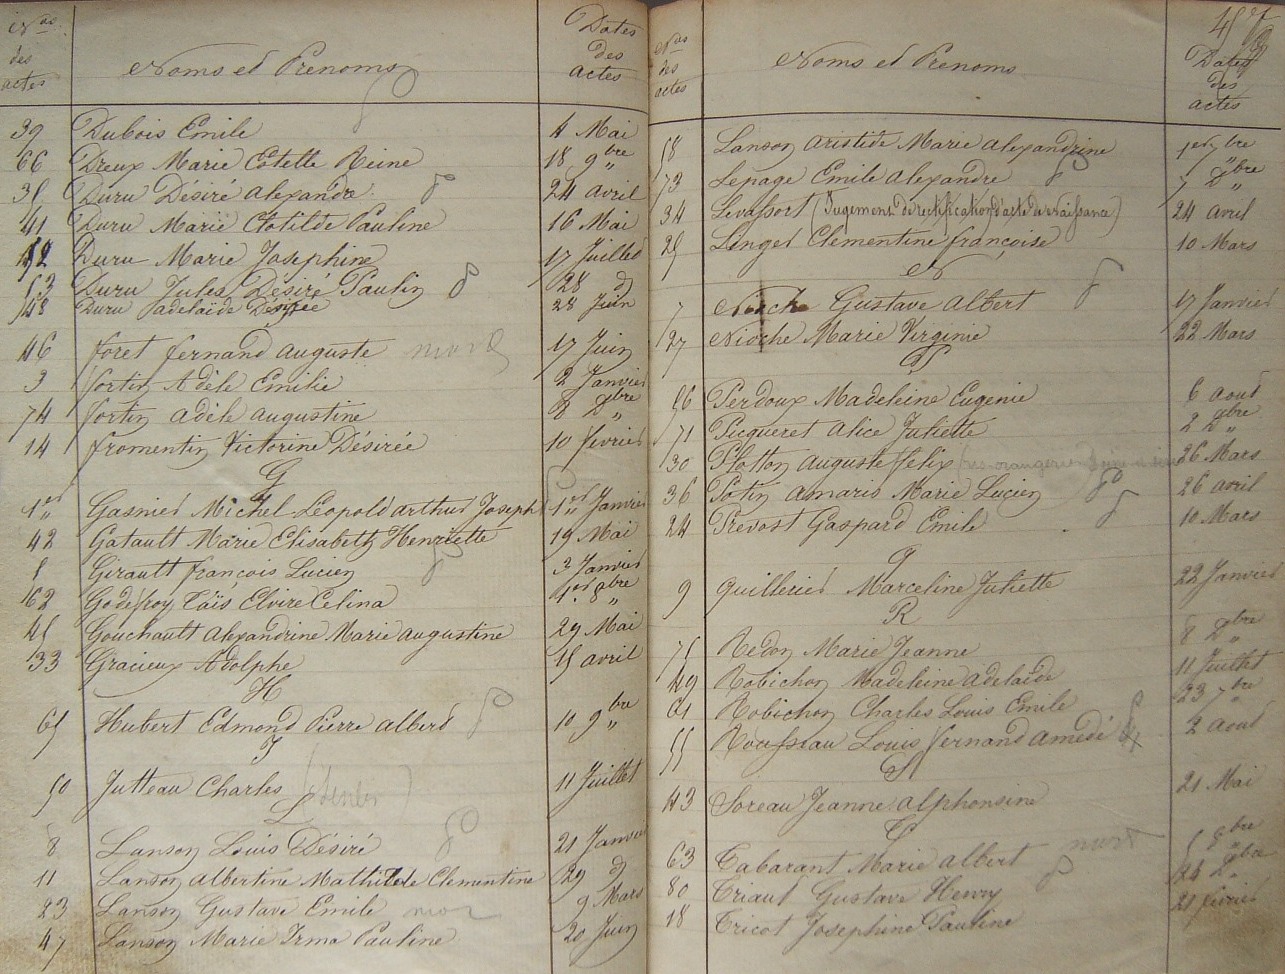 Nos des actes Noms et Prenoms Dates des actes
39 Dubois Emile 4 Mai
66 Dreux Marie Estelle Reine 18 9bre
35 Duru Désiré Alexandre 24 avril
41 Duru Marie Clotilde Pauline 16 Mai
52 Duru Marie Josephine 17 Juillet
53 Duru Jules Désiré Paulin 28 d
48 Duru adelaïde Désirée 28 Juin
46 foret fernand auguste mort 17 Juin
3 fortin Adèle Emilie 2 Janvier
74 fortin adèle augustine 8 Xbre
14 fromentin Victorine Désirée 10 fevrier
G
1er Gasnier Michel Léopold arthur Joseph 1er Janvier
42 Gatault Marie Elisabeth Henriette 19 Mai
5 Girault françois Lucien 3 Janvier
62 Godefroy Taïs Elvire Celina 1er 8bre
45 Gouchault Alexandrine Marie augustine 29 Mai
33 Gracieux Adolphe 15 avril
H
65 Hubert Edmond Pierre albert 10 9bre
J
50 Jutteau Charles 11 Juillet
L
8 Lanson Louis Désiré 21 Janvier
11 Lanson albertine Mathilde Clementine 29 d
23 Lanson Gustave Emile mor 9 Mars
47 Lanson Marie Irma Pauline 20 Juin
Nos des actes Noms et Prenoms Dates des actes
58 Lanson aristide Marie alexandrine 1er 7bre
73 Lepage Emile alexandre 7 Xbre
34 Levassort (Jugement de rectification d'acte de Naissance) 24 avril
25 Linget Clementine françoise 10 Mars
N
7 Gustave Albert 17 Janvier
27 Nioche Marie Virginie 22 Mars
P
56 Perdoux Madeleine Eugenie 6 aout
71 Picqueret alice Juliette 2 Xbre
30 Plotton auguste félix 26 Mars
36 Potin amaris Marie Lucien 26 avril
24 Prevost Gaspard Emile 10 Mars
Q
9 Quillerier Marceline Juliette 22 Janvier
R
75 Redon Marie Jeanne 8 Xbre
49 Robichon Madeleine adelaïde 11 Juillet
61 Robichon Charles Louis Emile 23 7bre
55 Rousseau Louis fernand amedé 2 aout
S
43 Soreau Jeanne alphonsine 21 Mai
T
63 Tabarant Marie albert mort 5 8bre
80 Triau Gustave Henry 24 Xbre
18 Tricot Josephine Pauline 21 fevrier